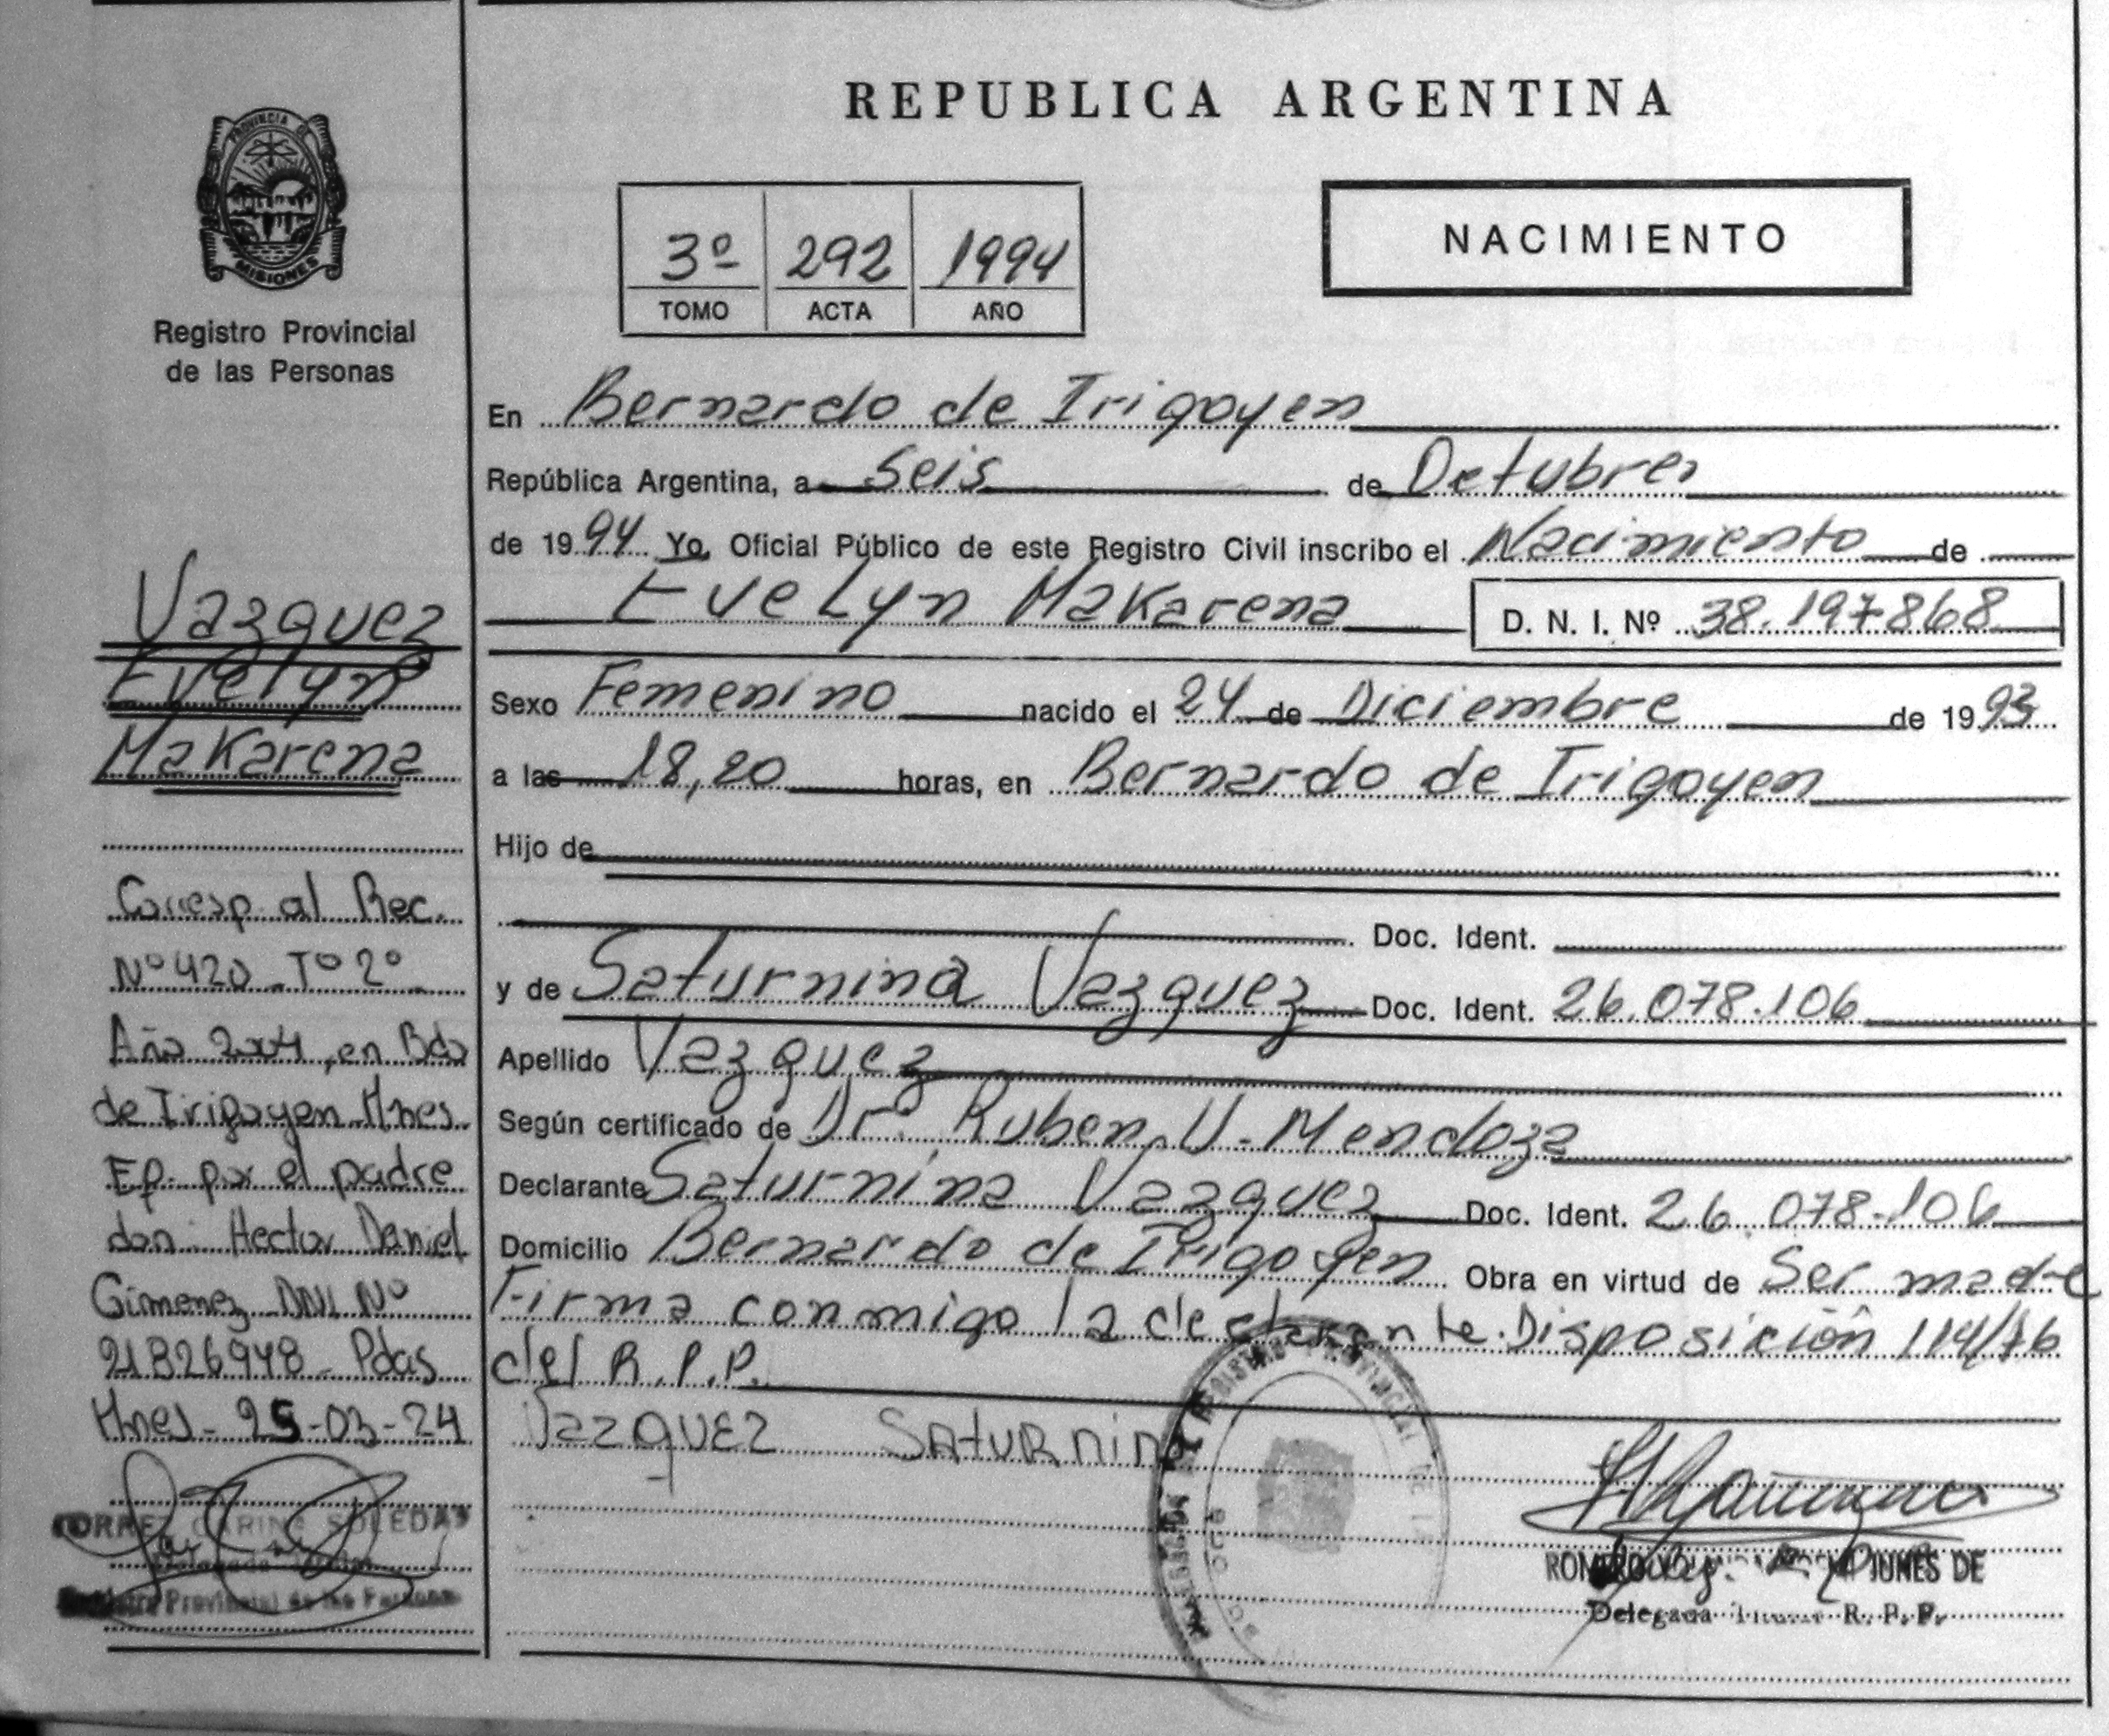 REPUBLICA ARGENTINA
PROVINCIA D
MISIONES
Registro Provincial
de las Personas
3º 292 1994
TOMO ACTA AÑO
NACIMIENTO
En Bernardo de Irigoyen
República Argentina, a Seis de Octubre
de 1994 Yo Oficial Público de este Registro Civil inscribo el Nacimiento de
Evelyn Makarena D. N. I. Nº 38.197868
Sexo Femenino nacido el 24 de Diciembre de 1993
a las 18,20 horas, en Bernardo de Irigoyen
Hijo de
Doc. Ident.
y de Saturnina Vazquez Doc. Ident. 26.078.106
Apellido Vazquez
Según certificado de Dr. Ruben U. Mendoza
Declarante Saturnina Vazquez Doc. Ident. 26.078.106
Domicilio Bernardo de Irigoyen Obra en virtud de Ser madre
Firma conmigo la declarante. Disposición 114/76
del R.P.P.
Vazquez Saturnina
REGISTRO PROVINCIAL DE
DE
Delegada Titular R. P. P.
Vazquez
Evelyn
Makarena
Corresp al Rec.
Nº 420 - Tº 2º
Año 2004, en Bdo
de Irigoyen Mnes.
Ef. por el padre
don: Hector Daniel
Gimenez DNI Nº
21826948 - Pdas
Mnes - 25-03-24
TORREZ CARINA SOLEDAD
Delegada Titular
Registro Provincial de las Personas